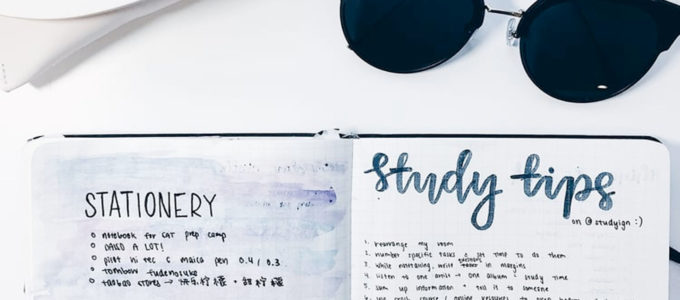 STATIONERY
notebook for CAT prep camp
DAISO A LOT!
pilot hi tec c maica pen 0.4 / 0.3
tombow fudenosuke
taobao stores →
study tips
on @studyign :)
1. rearrange my room
2. number specific tasks & set time to do them
3. while notetaking, write questions in margins
4. listen to one artist → one album = study time
5. sum up information & tell it to someone